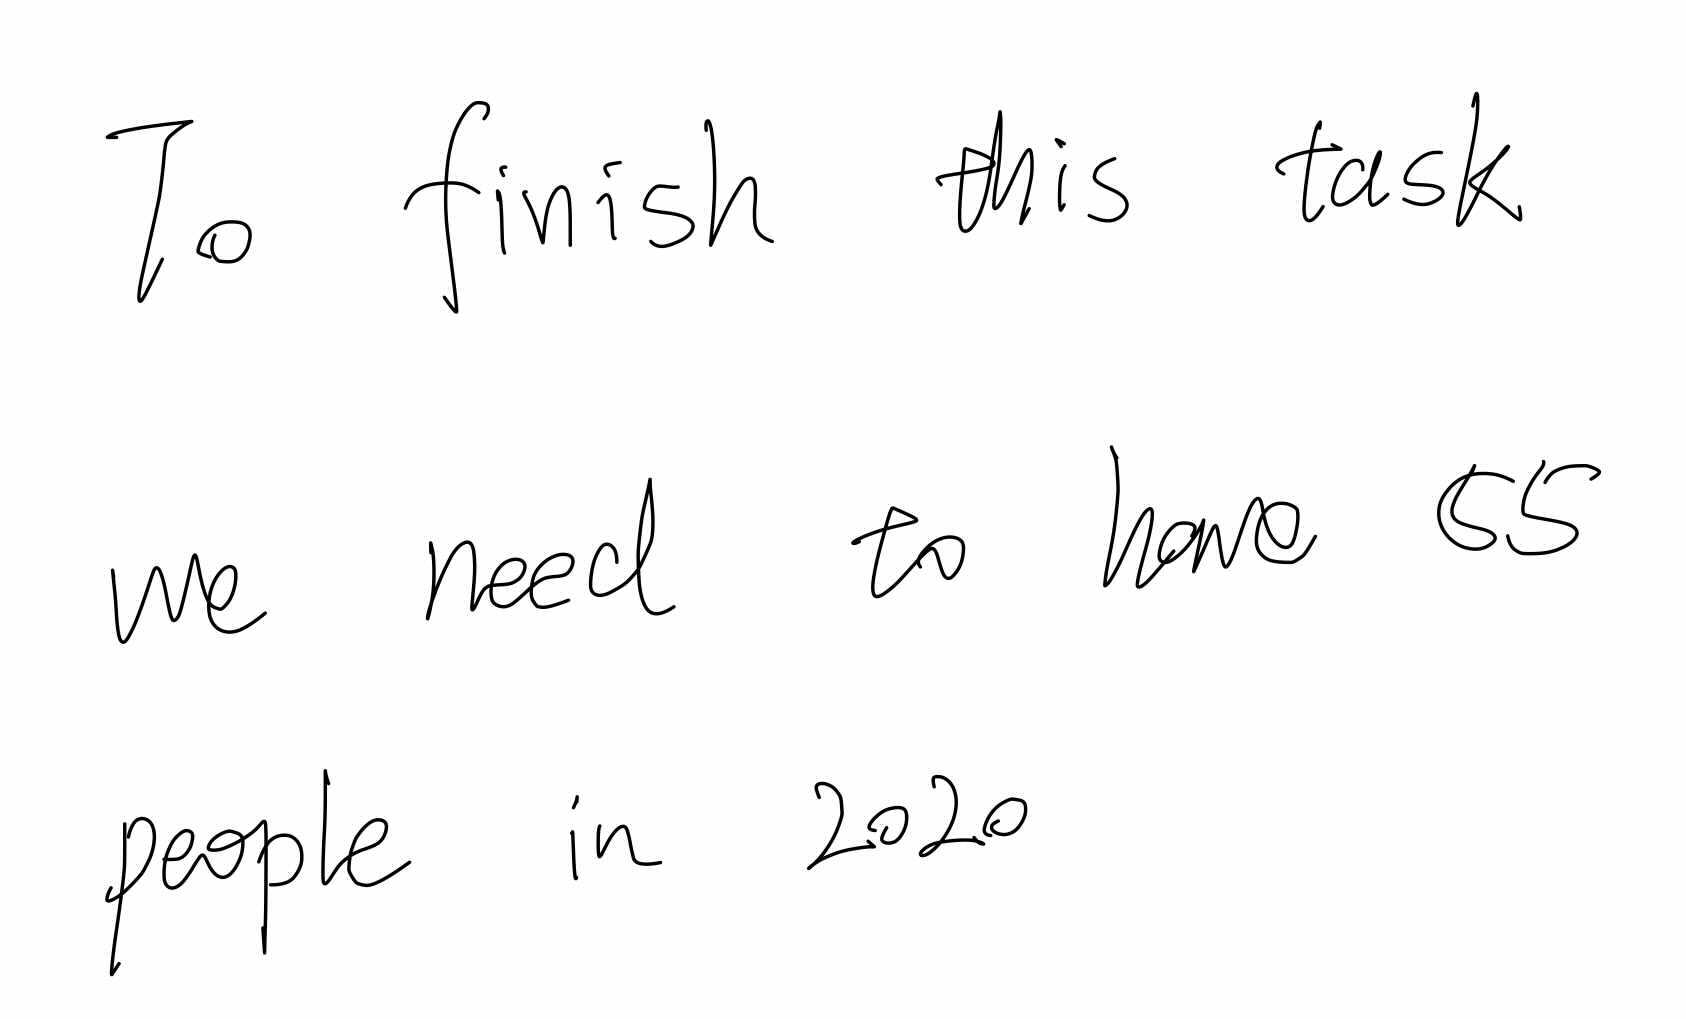 To finish this task
we need to have 55
people in 2020